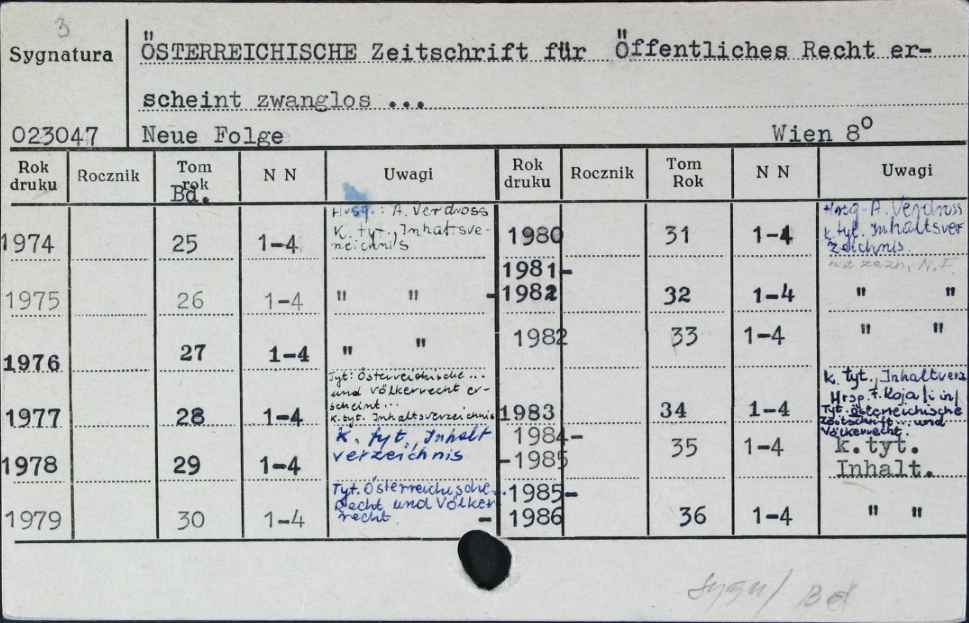 3
Sygnatura
ÖSTERREICHISCHE Zeitschrift für Öffentliches Recht er-
scheint zwanglos ...
023047 Neue Folge Wien 8º
Rok druku Rocznik Tom rok N N Uwagi Rok druku Rocznik Tom Rok N N Uwagi
Bd.
1974 25 1-4 Hrsg.: A. Verdross
K. tyt., Inhaltsve-
neichnis
1975 26 1-4 " "
1976 27 1-4 " "
1977 28 1-4 Tyt: Österreichische...
und Völkerrecht er-
scheint...
K. tyt. Inhaltsverzeichnis
1978 29 1-4 K. tyt., Inhalt
verzeichnis
1979 30 1-4 Tyt. Österreichische..
Recht und Völker
recht.
1980 31 1-4 Hrsg. A. Verdross
k tyt. Inhaltsver
zeichnis.
N.F.
1981-
-1982 32 1-4 " "
1982 33 1-4 " "
1983 34 1-4 k. tyt., Inhaltverz
Tyt. Österreichische
Zeitschrift... und
Völkerrecht.
1984-
-1985 35 1-4 k. tyt.
Inhalt.
1985-
-1986 36 1-4 " "